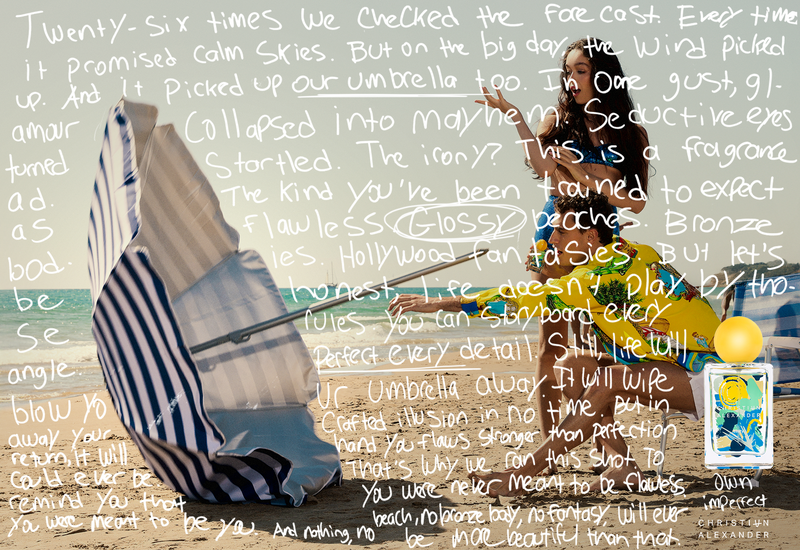 Twenty-six times we checked the forecast. Every time
it promised calm skies. But on the big day, the wind picked
up. And it picked up our umbrella too. In one gust, gl-
amour collapsed into mayhem. Seductive eyes
turned startled. The irony? This is a fragrance
ad. The kind you've been trained to expect
as flawless Glossy beaches. Bronze
bod. ies. Hollywood fantasies. But let's
be honest, life doesn't play by tho-
se rules you can storyboard every
angle. Perfect every detail. Still, life will
blow yo ur umbrella away. It will wipe
away your crafted illusion in no time, but in
return, it will hand you flaws stronger than perfection
could ever be. That's why we ran this shot to
remind you that you were never meant to be flawless
you were meant to be you. And nothing, no beach, no bronze body, no fantasy, will ever
be more beautiful than that.
CHRISTIAN
ALEXANDER
own
imperfect
CHRISTIAN
ALEXANDER